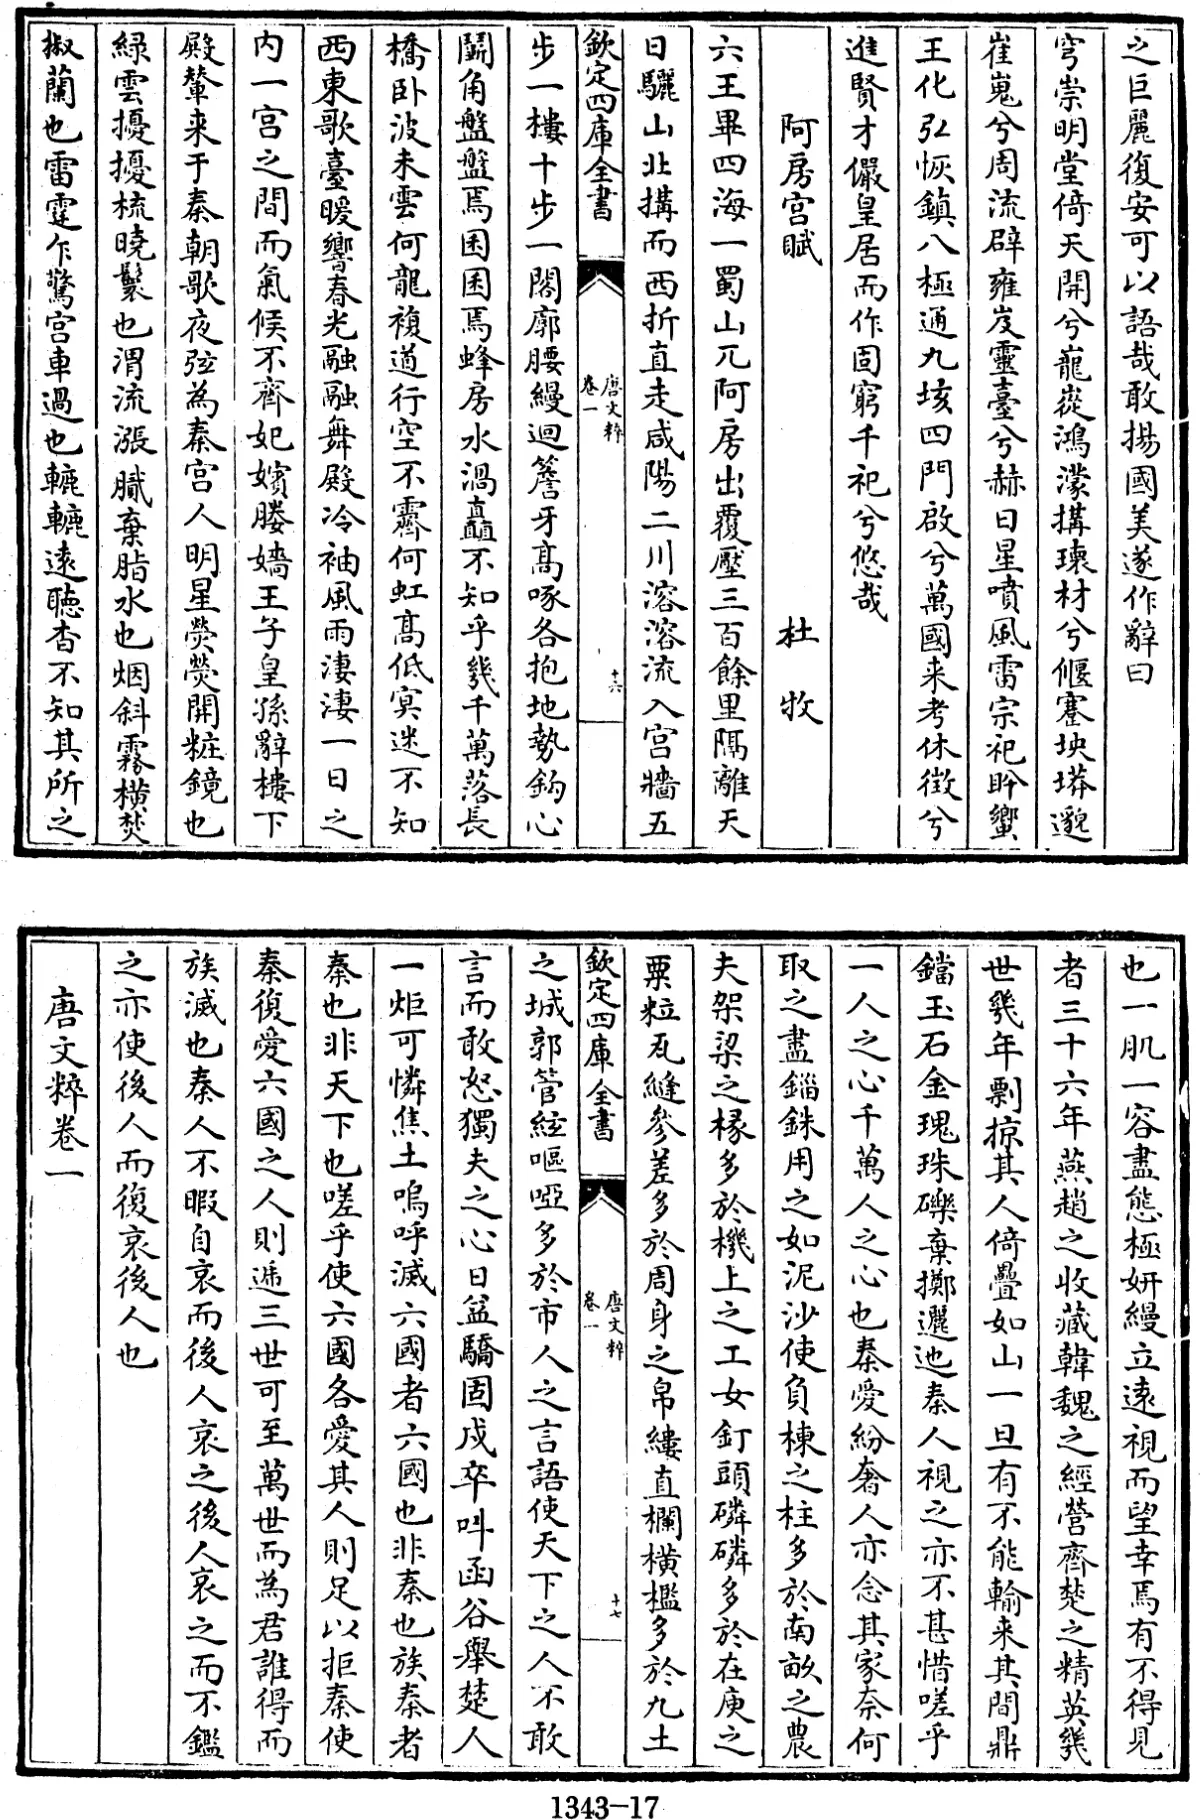 之巨麗復安可以語哉敢揚國美遂作辭曰
穹崇明堂倚天開兮巃嵸鴻濛搆瓌材兮偃蹇坱圠邈
崔嵬兮周流辟雍岌靈臺兮赫日星噴風雷宗祀肸蠁
王化弘恢鎮八極通九垓四門啟兮萬國来考休徴兮
進賢才儼皇居而作固窮千祀兮悠哉
阿房宮賦 杜牧
六王畢四海一蜀山兀阿房出覆壓三百餘里隔離天
日驪山北搆而西折直走咸陽二川溶溶流入宮牆五
欽定四庫全書 唐文粹 卷一 十六
步一樓十步一閣廊腰縵迴簷牙髙啄各抱地勢鈎心
鬭角盤盤焉囷囷焉蜂房水渦矗不知乎幾千萬落長
橋卧波未雲何龍複道行空不霽何虹髙低冥迷不知
西東歌臺暖響春光融融舞殿冷袖風雨淒淒一日之
内一宮之間而氣候不齊妃嬪媵嬙王子皇孫辭樓下
殿輦来于秦朝歌夜弦為秦宮人明星熒熒開粧鏡也
緑雲擾擾梳曉鬟也渭流漲膩棄脂水也烟斜霧横焚
椒蘭也雷霆乍驚宮車過也轆轆逺聽杳不知其所之
也一肌一容盡態極妍縵立逺視而望幸焉有不得見
者三十六年燕趙之收藏韓魏之經營齊楚之精英幾
世幾年剽掠其人倚疊如山一旦有不能輸来其間鼎
鐺玉石金瑰珠礫棄擲邐迆秦人視之亦不甚惜嗟乎
一人之心千萬人之心也秦愛紛奢人亦念其家奈何
取之盡錙銖用之如泥沙使負棟之柱多於南畝之農
夫架梁之椽多於機上之工女釘頭磷磷多於在庾之
粟粒瓦縫參差多於周身之帛縷直欄横檻多於九土
欽定四庫全書 唐文粹 卷一 十七
之城郭管絃嘔啞多於市人之言語使天下之人不敢
言而敢怒獨夫之心日益驕固戍卒叫函谷舉楚人
一炬可憐焦土嗚呼滅六國者六國也非秦也族秦者
秦也非天下也嗟乎使六國各愛其人則足以拒秦使
秦復愛六國之人則遞三世可至萬世而為君誰得而
族滅也秦人不暇自哀而後人哀之後人哀之而不鑑
之亦使後人而復哀後人也
唐文粹卷一
1343-17